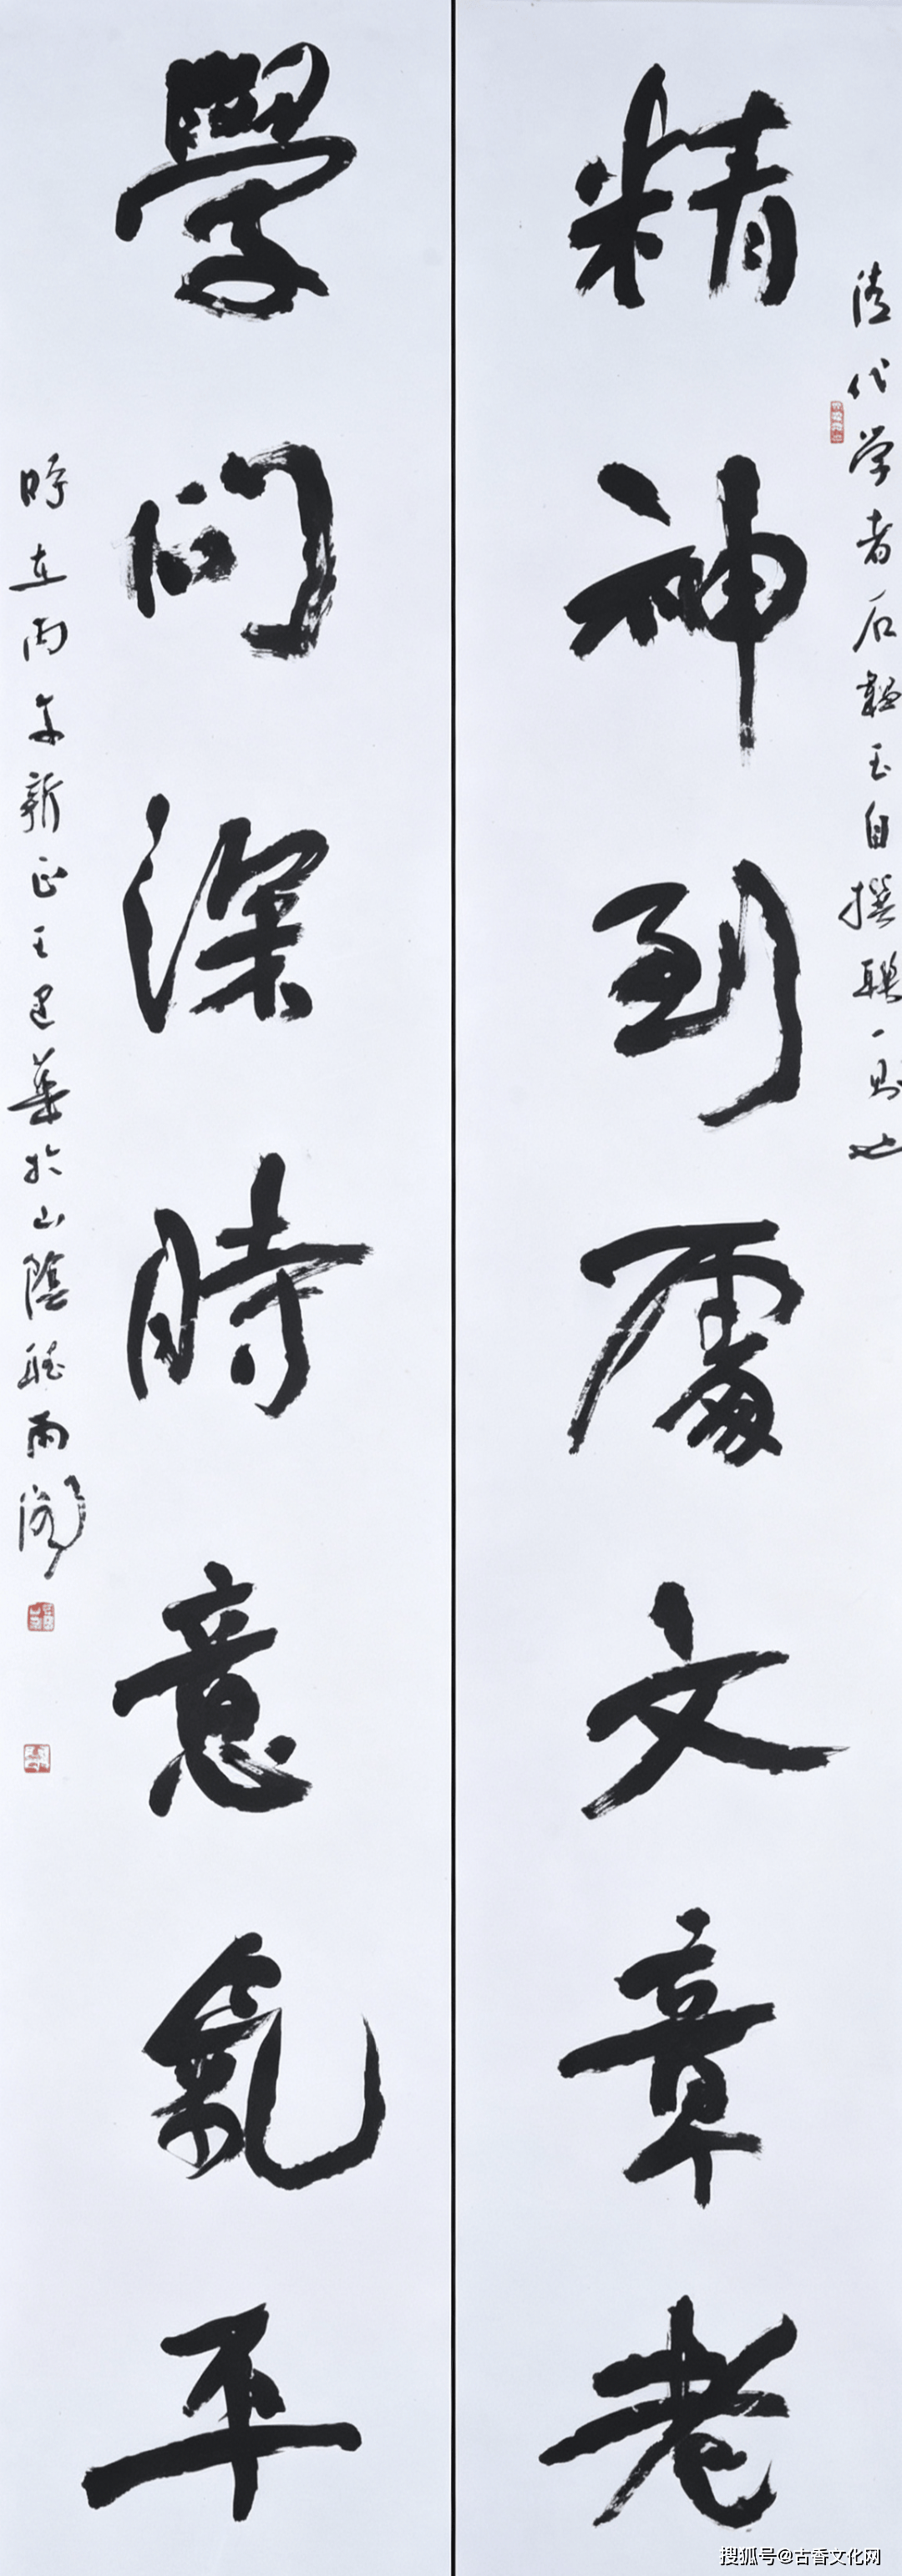 清代学者石韞玉自撰聯一則也
精神到處文章老
學問深時意氣平
時在丙午新正王建華於山陰聽雨閣
搜狐号@古香文化网